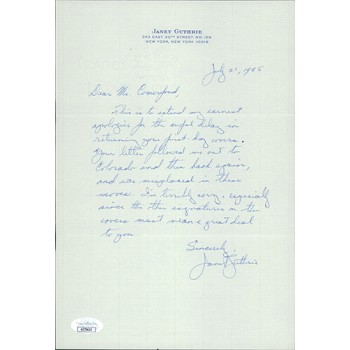 JANET GUTHRIE
NEW YORK, NEW YORK 10016
July 21, 1985
Dear Mr. Comerford,
This is to extend my earnest
apologies for the awful delay in
returning your first day covers.
Your letter followed me out to
Colorado and then back again,
and was misplaced in these
moves. I'm terribly sorry, especially
since the other signatures on the
covers must mean a great deal
to you.
Sincerely,
Janet Guthrie